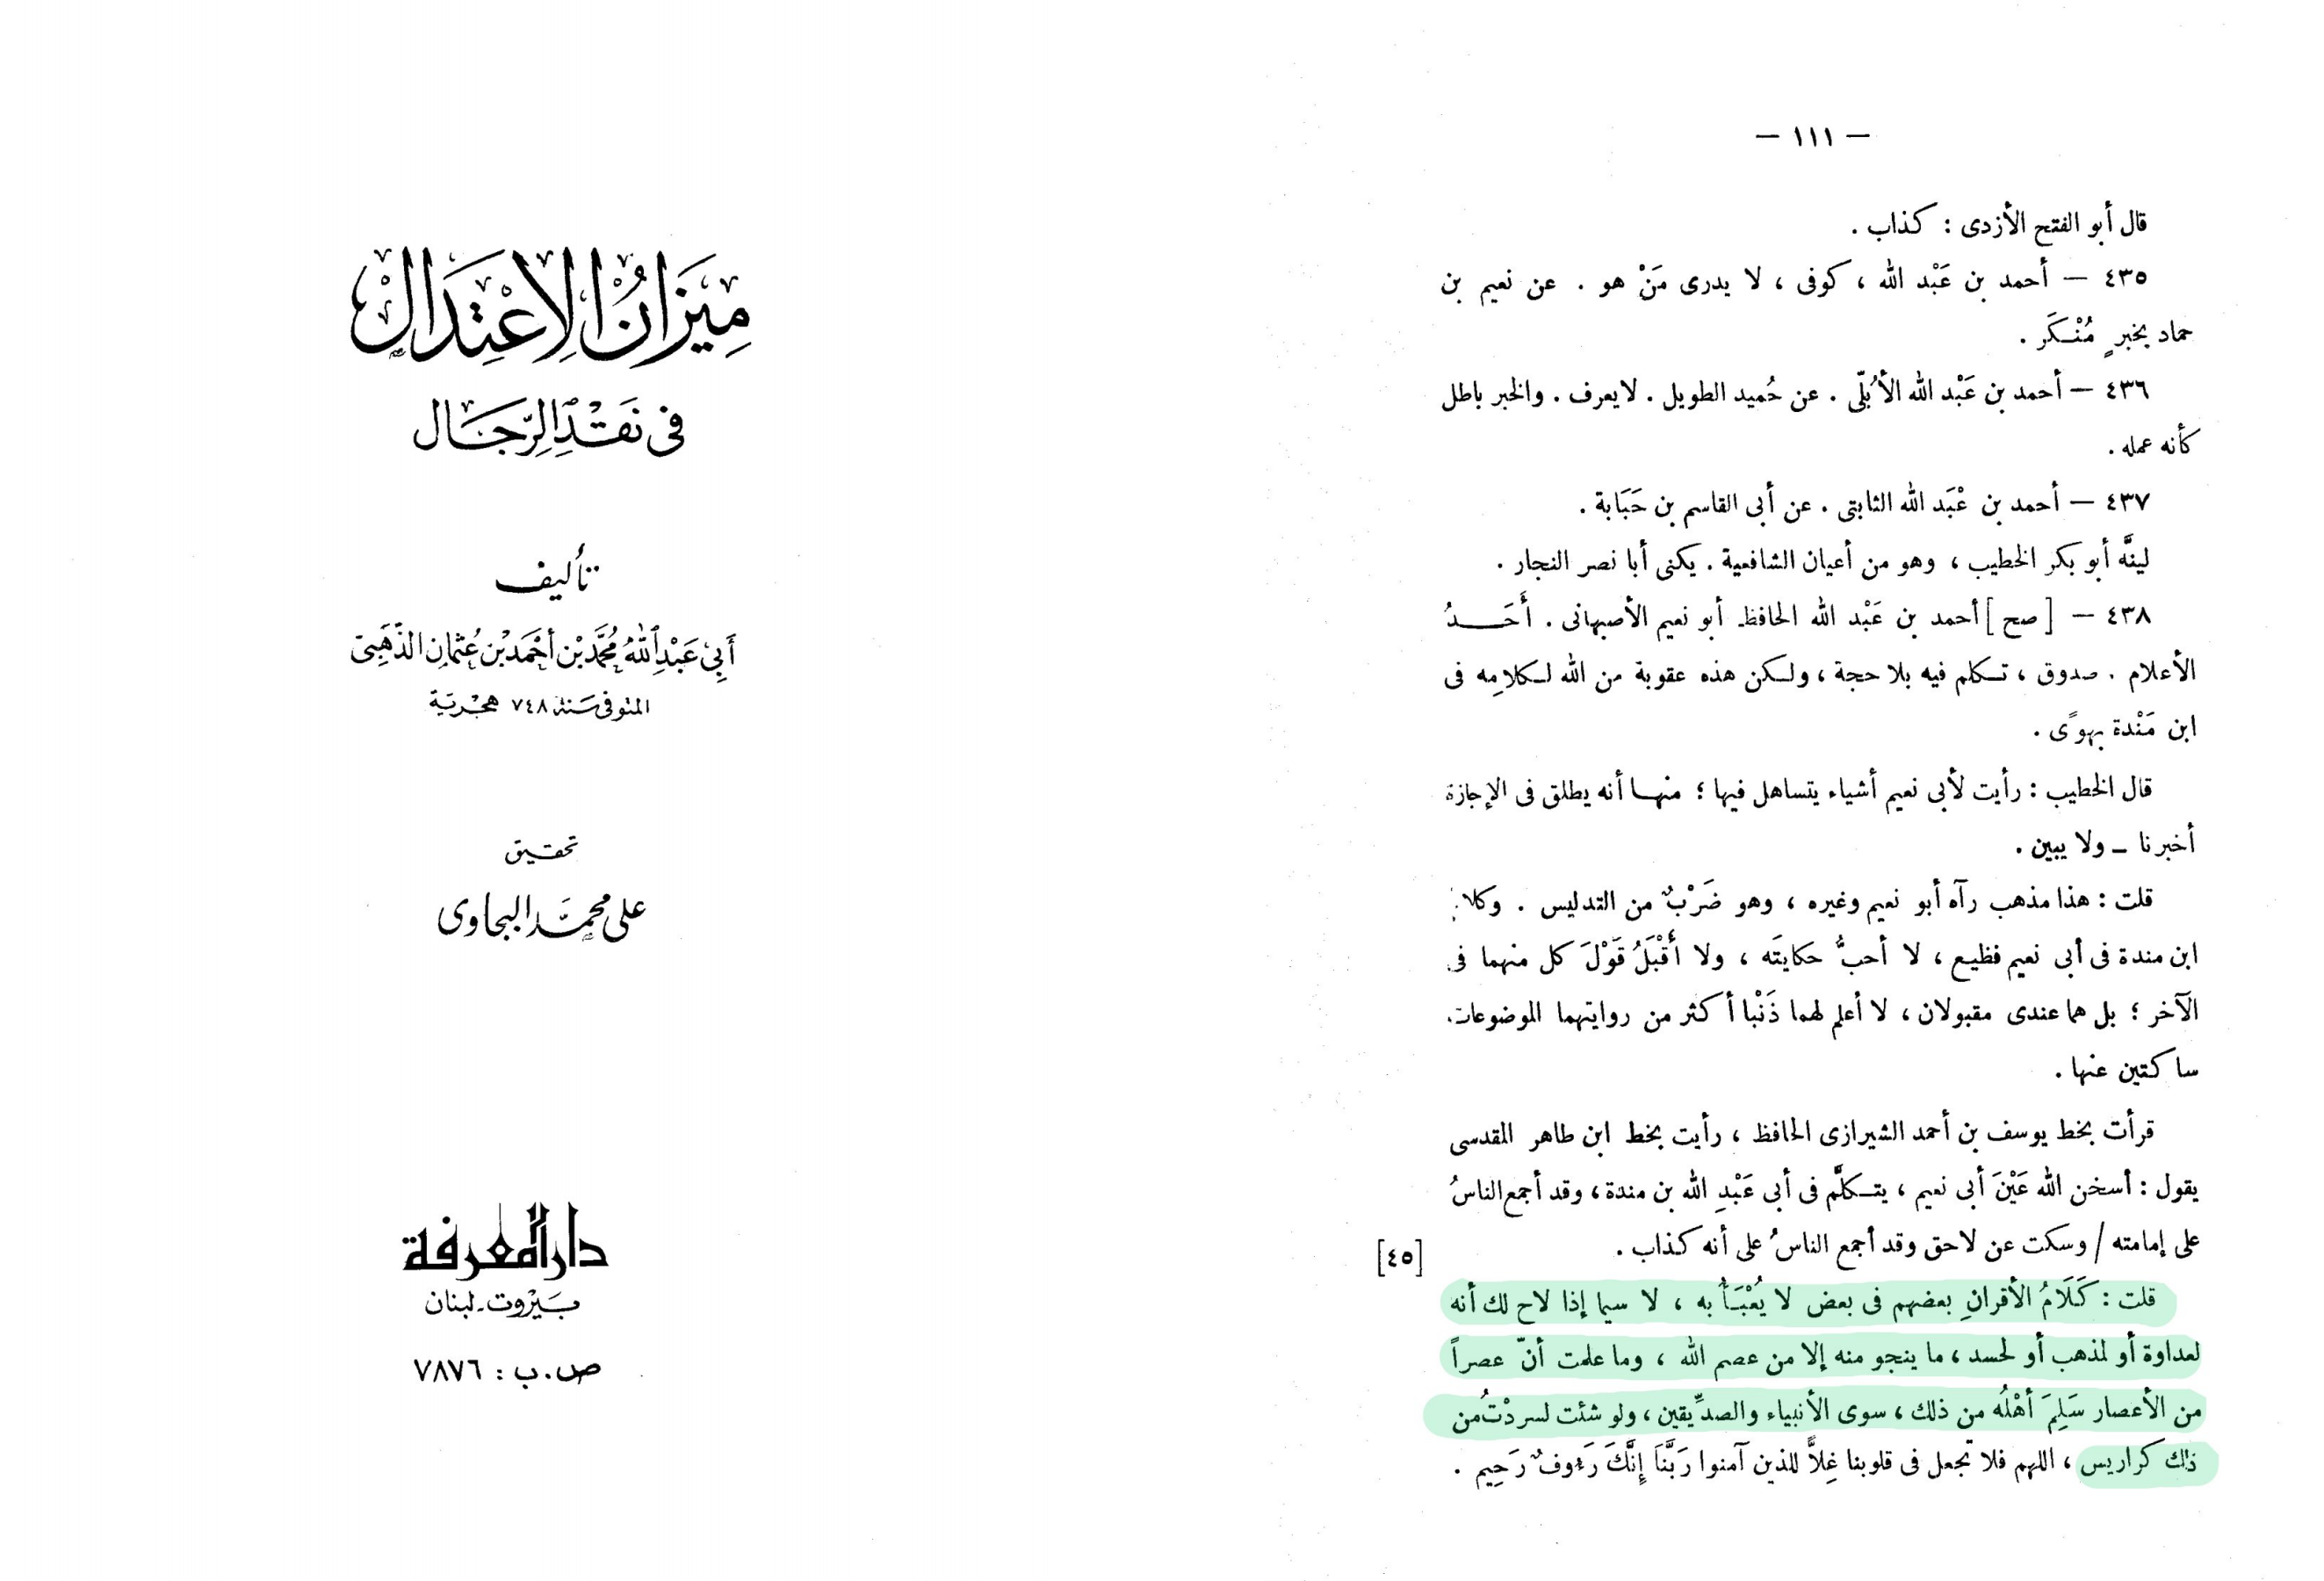 — ١١١ —
قال أبو الفتح الأزدى : كذاب .
٤٣٥ — أحمد بن عَبْد الله ، كوفى ، لا يدرى مَنْ هو . عن نعيم بن
حماد بخبرٍ مُنْكَر .
٤٣٦ — أحمد بن عَبْد الله الأُبُلّى . عن حُميد الطويل . لايعرف . والخبر باطل
كأنه عمله .
٤٣٧ — أحمد بن عْبَد الله الثابتى . عن أبى القاسم بن حَبَابة .
لينَّه أبو بكر الخطيب ، وهو من أعيان الشافعية . يكنى أبا نصر النجار .
٤٣٨ — [ صح ] أحمد بن عَبْد الله الحافظ أبو نعيم الأصبهانى . أَحَدُ
الأعلام . صدوق ، تكلم فيه بلا حجة ، ولكن هذه عقوبة من الله لكلامِه فى
ابن مَنْدة بهوًى .
قال الخطيب : رأيت لأبى نعيم أشياء يتساهل فيها ؛ منها أنه يطلق فى الإجازة
أخبرنا – ولا يبين .
قلت : هذا مذهب رآه أبو نعيم وغيره ، وهو ضَرْبٌ من التدليس .
ابن مندة فى أبى نعيم فظيع ، لا أحبُّ حكايتَه ، ولا أَقْبَلُ قَوْلَ كل منهما فى
الآخر ؛ بل هما عندى مقبولان ، لا أعلم لهما ذَنْبا أكثر من روايتهما الموضوعات
ساكتين عنها .
قرأت بخط يوسف بن أحمد الشيرازى الحافظ ، رأيت بخط ابن طاهر المقدسى
يقول : أسخن الله عَيْنَ أبى نعيم ، يتكلَّم فى أبى عَبْدِ الله بن مندة ، وقد أجمع الناسُ
على إمامته / وسكت عن لاحق وقد أجمع الناسُ على أنه كذاب .
[٤٥]
قلت : كَلَامُ الأقرانِ بعضهم فى بعض لا يُعْبَأُ به ، لا سيما إذا لاح لك أنه
لعداوة أو لمذهب أو لحسد ، ما ينجو منه إلا من عصم الله ، وما علمت أنّ عصراً
من الأعصار سَلِمَ أهْلُه من ذلك ، سوى الأنبياء والصدِّيقين ، ولو شئت لسردْتُ من
ذلك كراريس ، اللهم فلا تجعل فى قلوبنا غِلاًّ للذين آمنوا رَبَّنَا إِنَّكَ رَءوفٌ رَحِيم .
مِيزَانُ الاِعْتِدَالْ
فى نَقْدِ الرِّجَال
تأليف
أَبِي عَبْدِ اللهِ مُحَمَّد بْن أَحْمَد بْن عُثْمان الذَّهَبِيّ
المتوفى سَنَة ٧٤٨ هجْريَّة
تحقيق
على محمَّد البجاوى
دار المعرفة
بَيْروت - لبنان
ص.ب : ٧٨٧٦